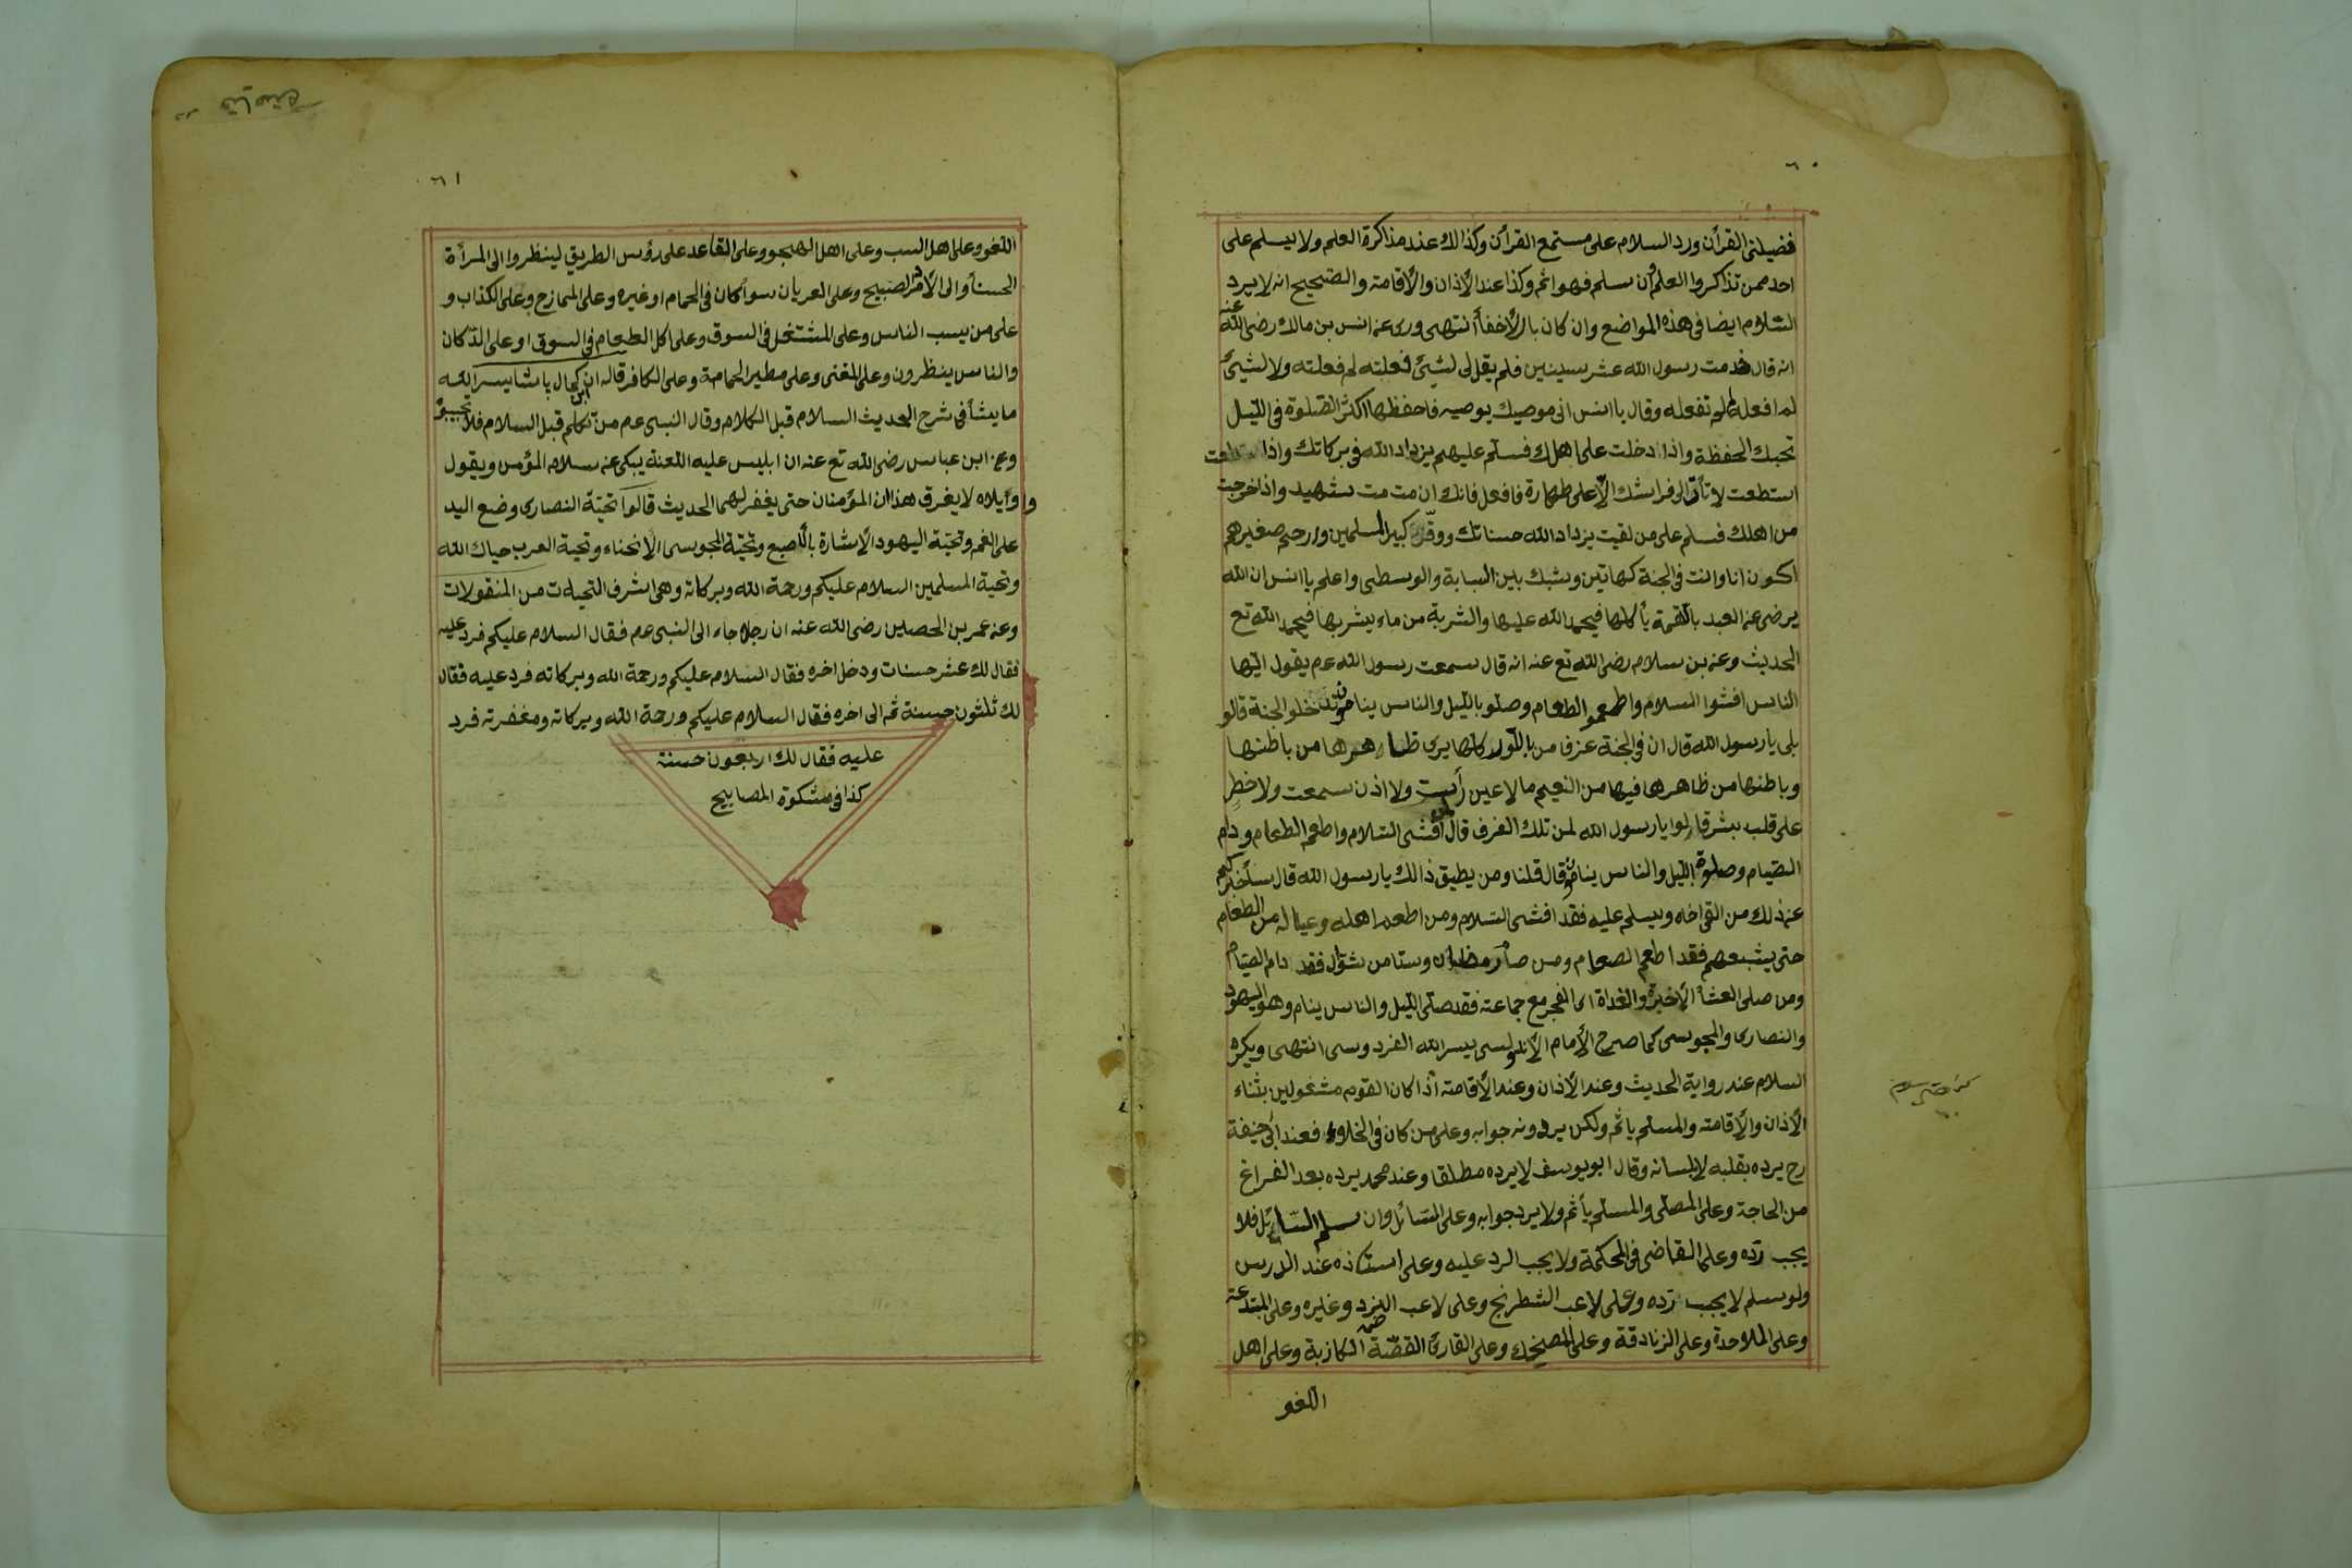 ٦٠
فضيلتى القرأن ورد السلام على مستمع القرأن وكذالك عند مذاكرة العلم ولا يسلم على
احد ممن تذاكروا العلم وان سلم فهو اثم وكذا عند الأذان والأقامته والصحيح انه لا يرد
السّلام ايضا فى هذه المواضع وان كان بالأخفأ انتهى وروى عنه انس بن مالك رضى اللّه عنه
انه قال خدمت رسول اللّه عشر سينين فلم يقل لى لشيئ فعلته لم فعلته ولا لشيئ
لم افعله لم لم تفعله وقال يا انس انى موصيك بوصيه فاحفظها اكثر الصّلوة فى الليل
تحبك الحفظة واذا دخلت على اهلك فسلم عليهم يزداد اللّه فى بركاتك واذا
استطعت لا تأو الى فراشك الّا على طهارة فافعل فانك ان مت مت شهيد واذا خرجت
من اهلك فسلم على من لقيت يزداد اللّه حسناتك ووقّر كبير المسلمين وارحم صغيرهم
اكون انا وانت فى الجنة كهاتين وشبك بين السبابة والوسطى واعلم يا انس ان اللّه
يرضى عن العبد باللّقمة يأكلها فيحمد اللّه عليها والشربة من ماء يشربها فيحمد اللّه تع
الحديث وعنه بن سلام رضى اللّه تع عنه انه قال سمعت رسول اللّه عم يقول ايّها
الناس افشوا السلام واطعموا الطعام وصلّو بالليل والناس ينامون تدخلو الجنة قالو
بلى يا رسول اللّه قال ان فى الجنة غرفا من باللّور كلها يرى ظاهرها من باطنها
وباطنها من ظاهرها فيها من النعيم مالا عين رأت ولا اذن سمعت ولا خطر
على قلب بشر قالوا يا رسول اللّه لمن تلك الغرف قال لمن أفشى السّلام واطعم الطعام ودام
الصّيام وصلوة الليل والناس ينامون قال قلنا ومن يطيق ذالك يا رسول اللّه قال سأخبركم
عنه ذلك من القى اخاه ويسلم عليه فقد افشى السّلام ومن اطعم اهله وعياله من الطعام
حتى يشبعهم فقد اطعم الصعام ومن صام رمضان وستا من شوّال فقد دام الصّيام
ومن صلى العشأ الأخيرة والغداة اى الفجر مع جماعته فقد صلّى الليل والناس ينام وهو اليهود
والنصارى والمجوسى كما صرح الأمام الأندلوسى يسر اللّه الفردوسى انتهى ويكره
السلام عند رواية الحديث وعند الأذان وعند الأقامته أذا كان القوم مشغولين بثناء
الأذان والأقامته والمسلم ياثم ولكن يردونه جوابه وعلى من كان فى الخلاء فعند ابى حنيفة
رح يرده بقلبه لا بلسانه وقال ابو يوسف لا يرده مطلقا وعند محمد يرده بعد الفراغ
من الحاجة وعلى المصلى والمسلم يأثم ولا يرد جوابه وعلى السّائل وان سلم السّائل فلا
يجب ردّه وعلى القاضى فى المحكمة ولا يجب الرد عليه وعلى استاذه عند الدرس
ولو سلم لا يجب ردّه وعلى لاعب الشطرنج وعلى لاعب النرد وغيره وعلى المبتدعة
وعلى الملاحدة وعلى الزنادقة وعلى المضحك وعلى القارئ القصّة الكازبة وعلى اهل
اللغو
٦١
اللغو وعلى اهل السب وعلى اهل الهجو وعلى القاعد على رؤس الطريق لينظروا الى المرأة
الحسنأ والى الأمرد الصبيح وعلى العريان سوأ كان فى الحمام او غيره وعلى الممازح وعلى الكذاب و
على من يسب الناس وعلى المشتغل فى السوق وعلى اكل الطعام فى السوق او على الدّكان
والناس ينظرون وعلى المغنى وعلى مطير الحمامة وعلى الكافر قاله ابن كمال پاشا يسر اللّه
ما يشأ فى شرح الحديث السلام قبل الكلام وقال النبى عم من تكلم قبل السلام فلا تجيبوه
وعن ابن عباس رضى اللّه تع عنه ان ابليس عليه اللعنة يبكى عنه سلام المؤمن ويقول
وا وايلاه لا يغرق هذان المؤمنان حتى يغفر لهما الحديث قالوا تحيّة النصارى وضع اليد
على الفم وتحيّة اليهود الإشارة بالأصبع وتحيّة المجوسى الإنحناء وتحية العرب حياك اللّه
وتحية المسلمين السلام عليكم ورحمة اللّه وبركاته وهى اشرف التحيات من المنقولات
وعنه عمر بن الحصلين رضى اللّه عنه ان رجلا جاء الى النبى عم فقال السلام عليكم فرد عليه
فقال لك عشر حسنات ودخل اخره فقال السلام عليكم ورحمة اللّه وبركاته فرد عليه فقال
لك ثلثون حسنة ثم الى اخره فقال السلام عليكم ورحمة اللّه وبركاته ومغفرته فرد
عليه فقال لك اربعون حسنة
كذا فى مشكوة المصابيح